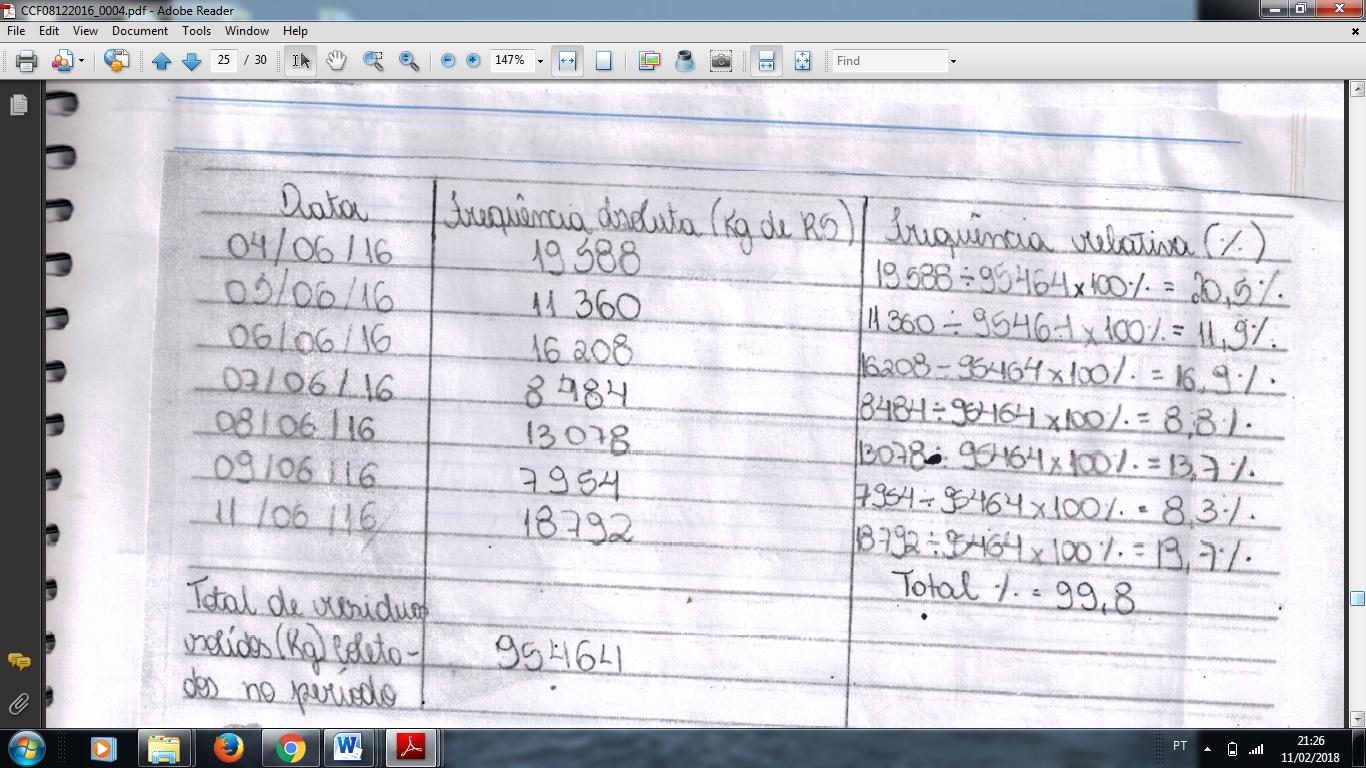 CCF08122016_0004.pdf - Adobe Reader
File Edit View Document Tools Window Help
25 / 30 147% Find
Data Frequência absoluta (Kg de RS) Frequência relativa (%)
04/06/16 19588 19588 ÷ 95464 x 100% = 20,5%
05/06/16 11 360 11 360 ÷ 95464 x 100% = 11,9%.
06/06/16 16208 16208 ÷ 95464 x 100% = 16,9%.
07/06/16 8484 8484 ÷ 95464 x 100% = 8,8%.
08/06/16 13078 13078 ÷ 95464 x 100% = 13,7%.
09/06/16 7954 7954 ÷ 95464 x 100% = 8,3%.
11/06/16 18792 18792 ÷ 95464 x 100% = 19,7%.
Total % = 99,8
Total de residuos
solidos (Kg) Coleta-
dos no período
95464
PT 21:26
11/02/2018